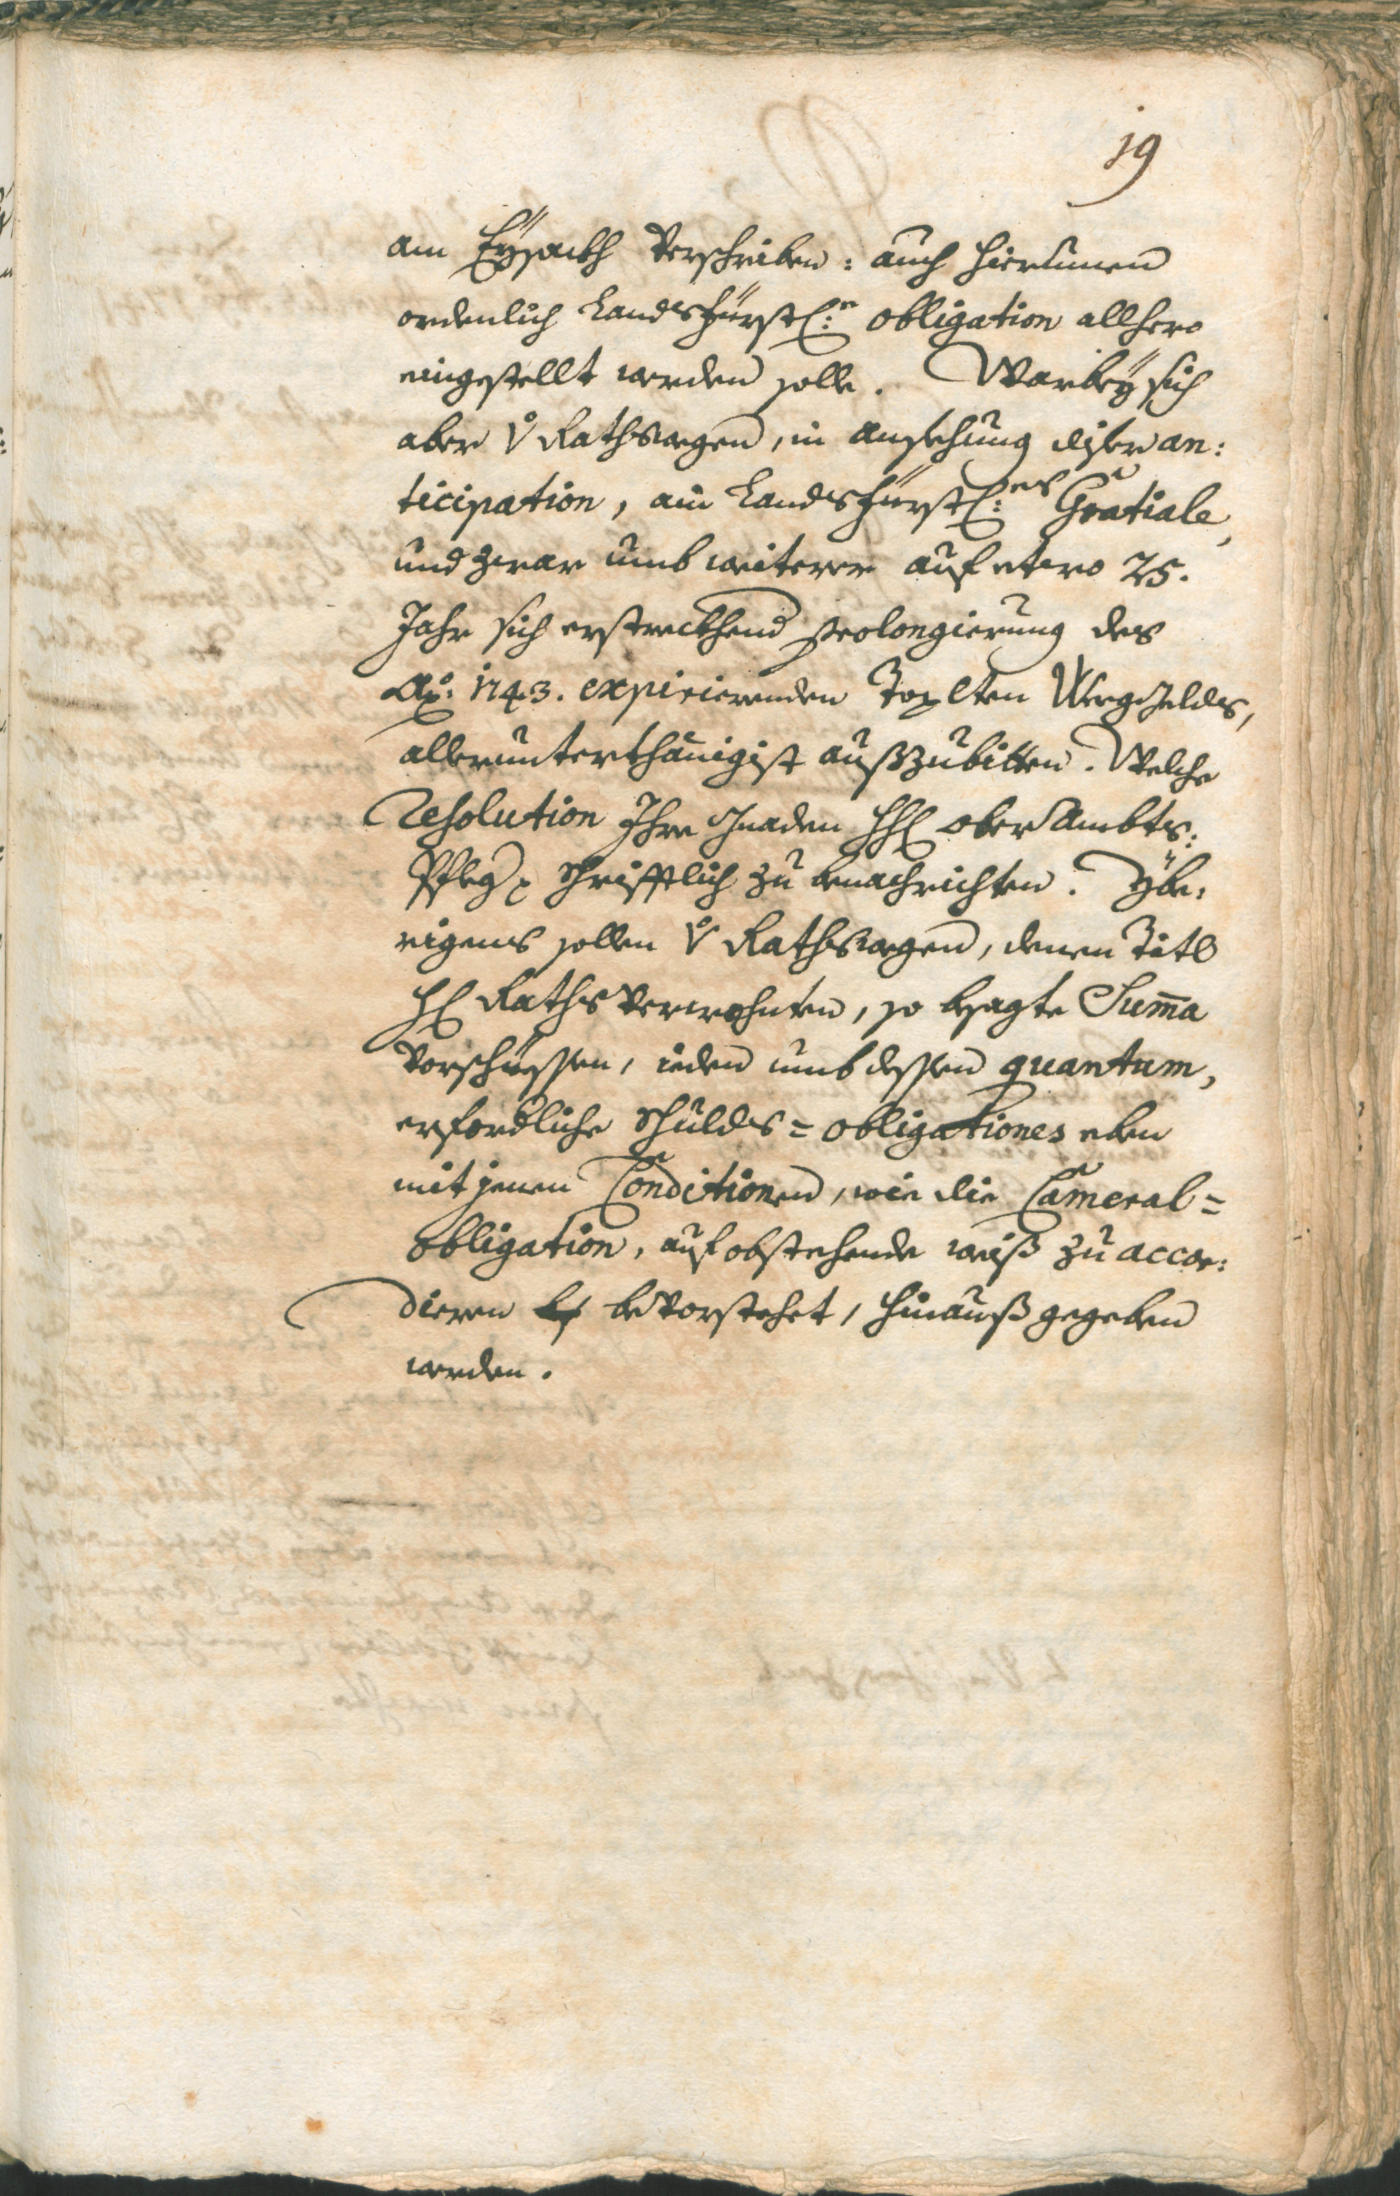 19
am Eÿsackh verschriben: auch hierumen
ordenlich Landtsfürstl:n obligation allhero
eingestellt werden solle. Warbeÿ sich
aber v̊ Rathswegen, in ansehung diser an:
ticipation, ain Landtsfürstl:es Gratiale,
und zwar umb weitere auf etwo 25.
Jahr sich erstreckhend prolongierung des
Ao: 1743. expirierenden Toplten Weeggelds,
allerunterthänigist außzubitten. Welche
Resolution Ihro Gnaden HH ober Ambts:
Pfleg schrifftlich zu benachrichten. Ybe:
rigens sollen v̊ Rathswegen, denen Titl
H Raths verwohnten, so besagte Sum̄a
vorschüssen, ieden umb dessen quantum,
erfordliche Schulds=obligationes eben
mit jenen Conditionen, wie die Cameral=
obligation, auf obstehende weiß zu accor:
dieren bevorstehet, hinauß gegeben
werden.